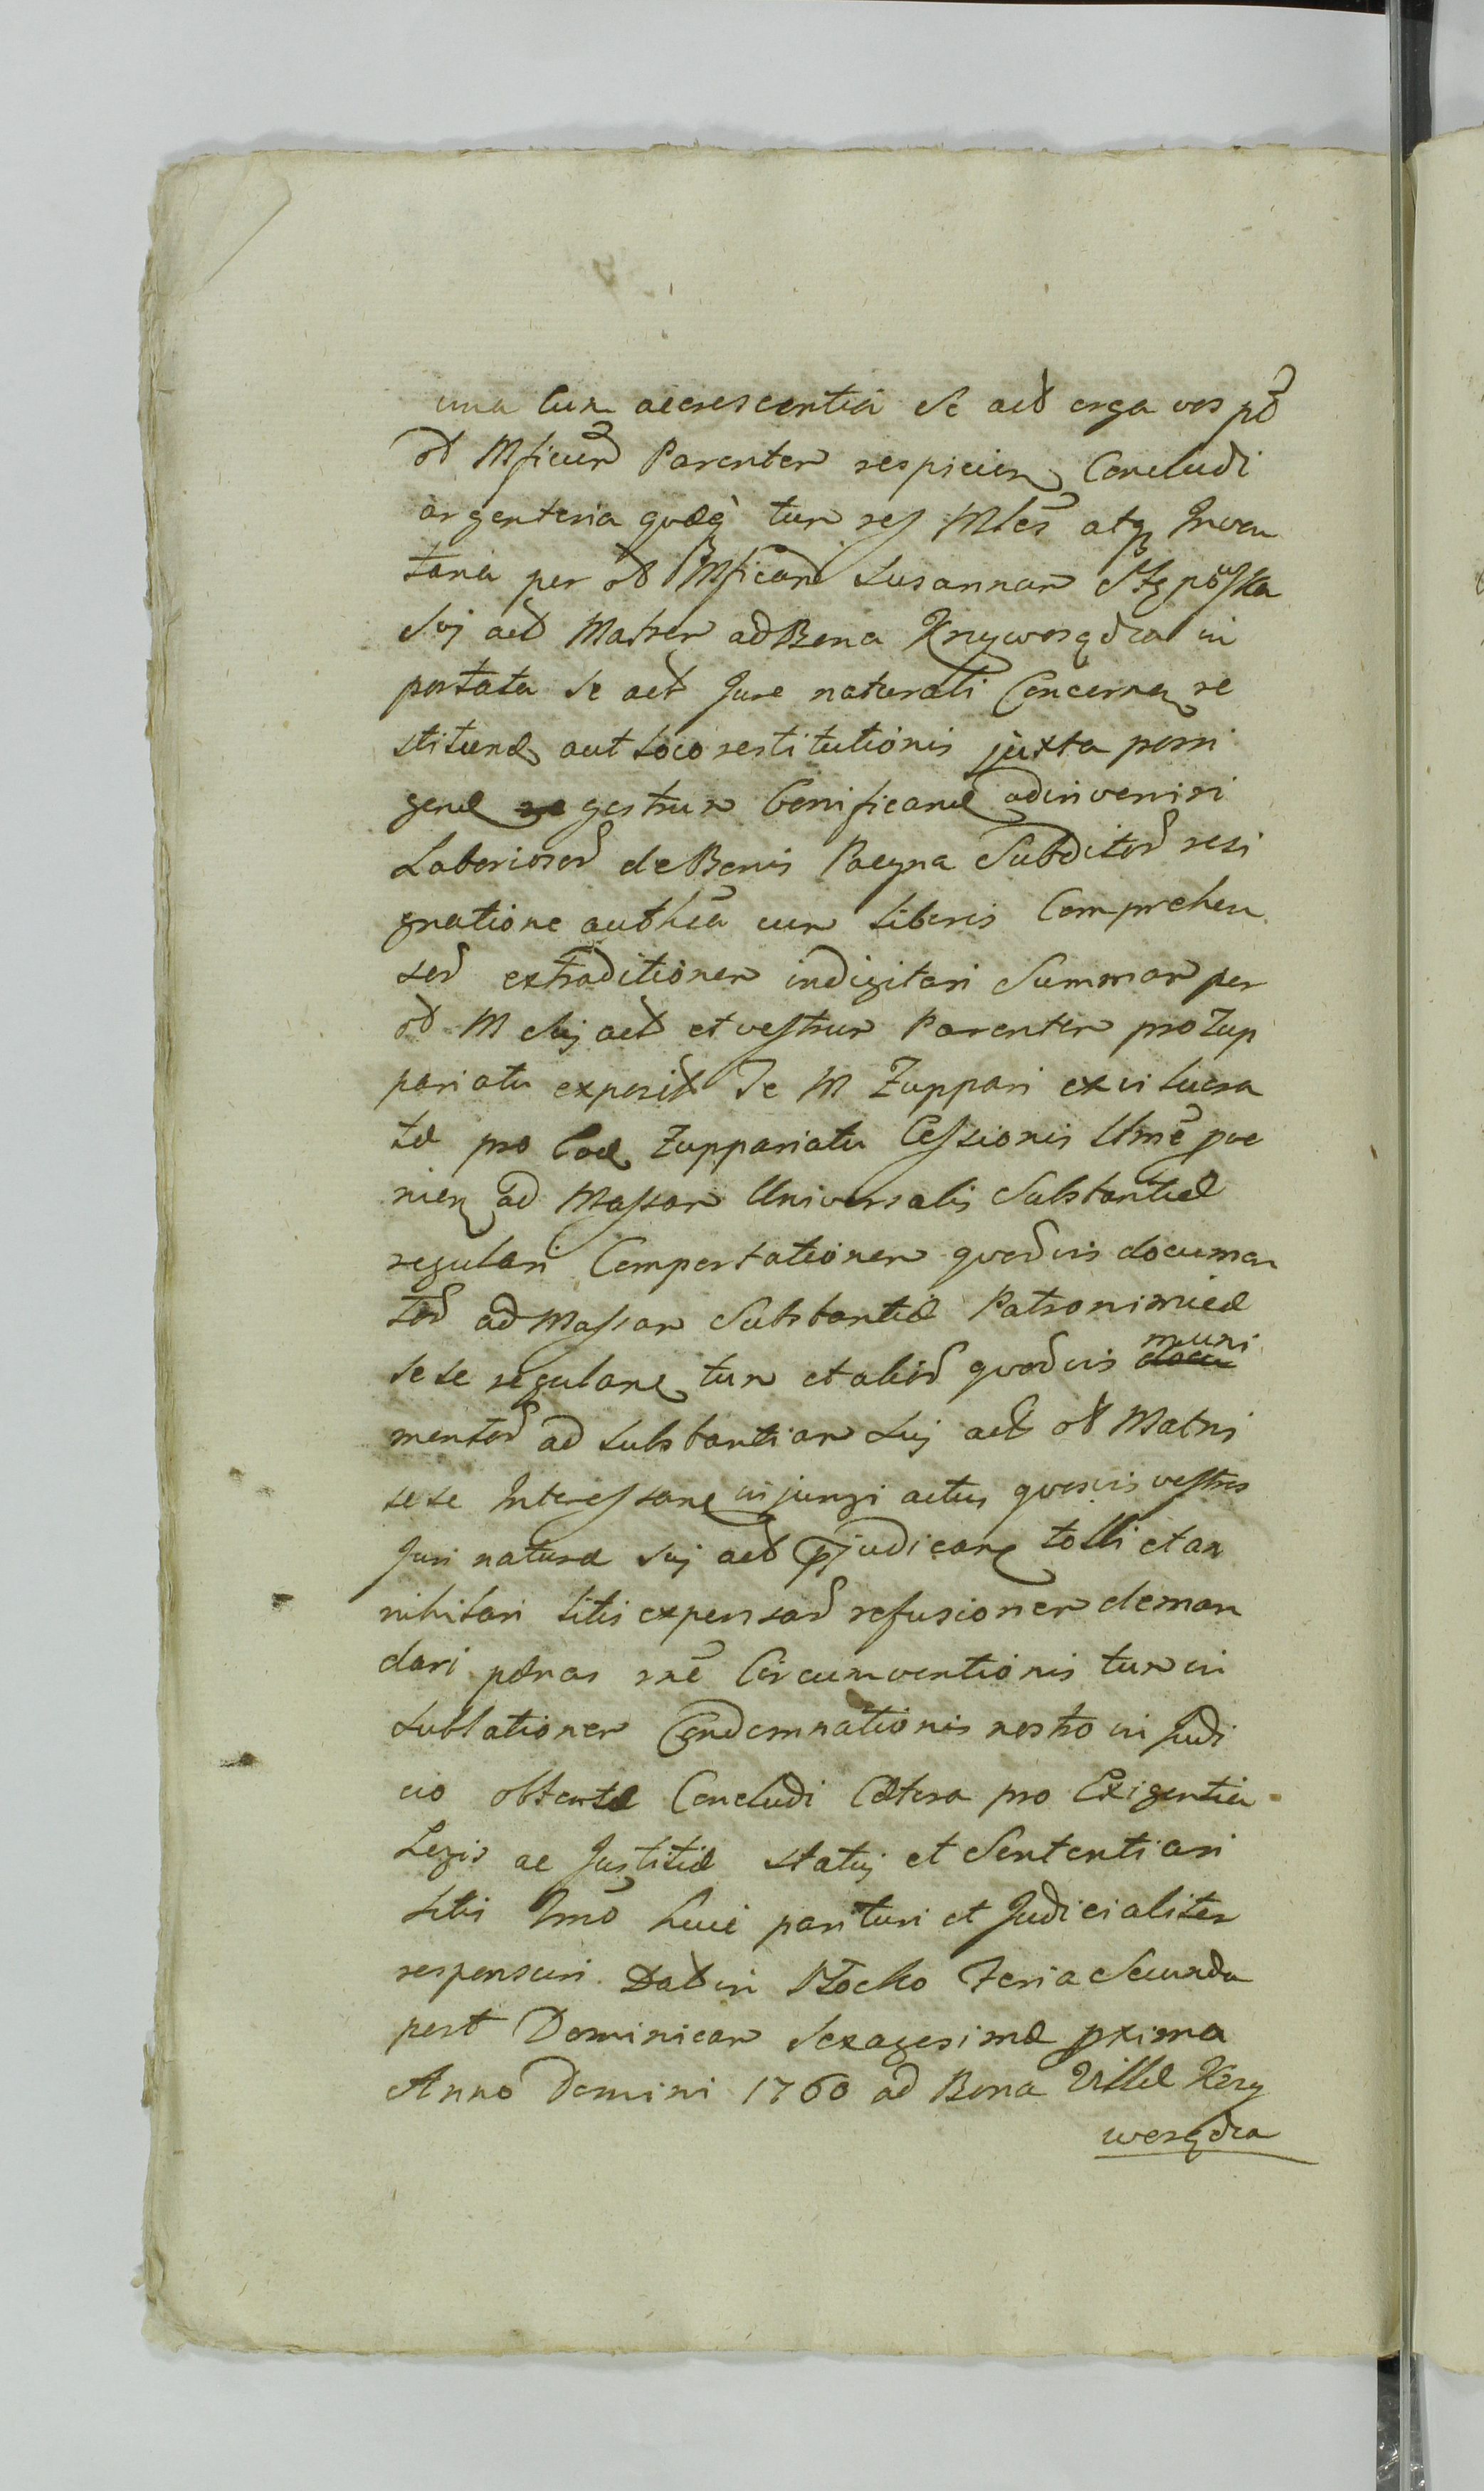 una cum accrescentia Se act erga vos pd
od Mficum Parentem respicien Concludi
argenteria quæq tum res Mles atq Inven
taria per od Mficam Susannam
Suj act Matrem ad Bona Krzyworzędza im
portata Se act Jure naturali Concernen re
stituend aut loco restitutionis juxta porri
gend regestrum bonificand adinveniri
Laboriosor de Bonis Pacyna Subditor resi
gnatione authca cum liberis Comprehen
sor extraditionem indigitari Summam per
od M Suj act et vestrum Parentem pro Zup
pariatu exposit Te M Zuppari ex vi lucra
tæ pro Zuppariatu Cessionis Ume prove
nien ad Massam Universalis Substantiæ
regulari Comportationem quorumvis documen
tor ad Massam Substantiæ Patronimicæ
sese regulare tum et alior quorumvis docu muni
mentor ad Substantiam Suj act od Matris
sese Interessane injungi actus quosvis vestros
Juri naturæ Suj act pjudicane tolli et an
nihilari litis expensar refusionem deman
dari pænas rne Circumventionis tum in
sublationem Condemnationis nostro in Judi
cio obtentæ Concludi Cætera pro Exigentia
Legis ac Justitiæ statuj et Sententiari
litis Imo huic parituri et Judicialiter
responsuri. Dat in Płocko Feria Secunda
post Dominicam Sexagesimæ pxima
Anno Domini 1760 ad Bona Villæ Krzy
worzędza